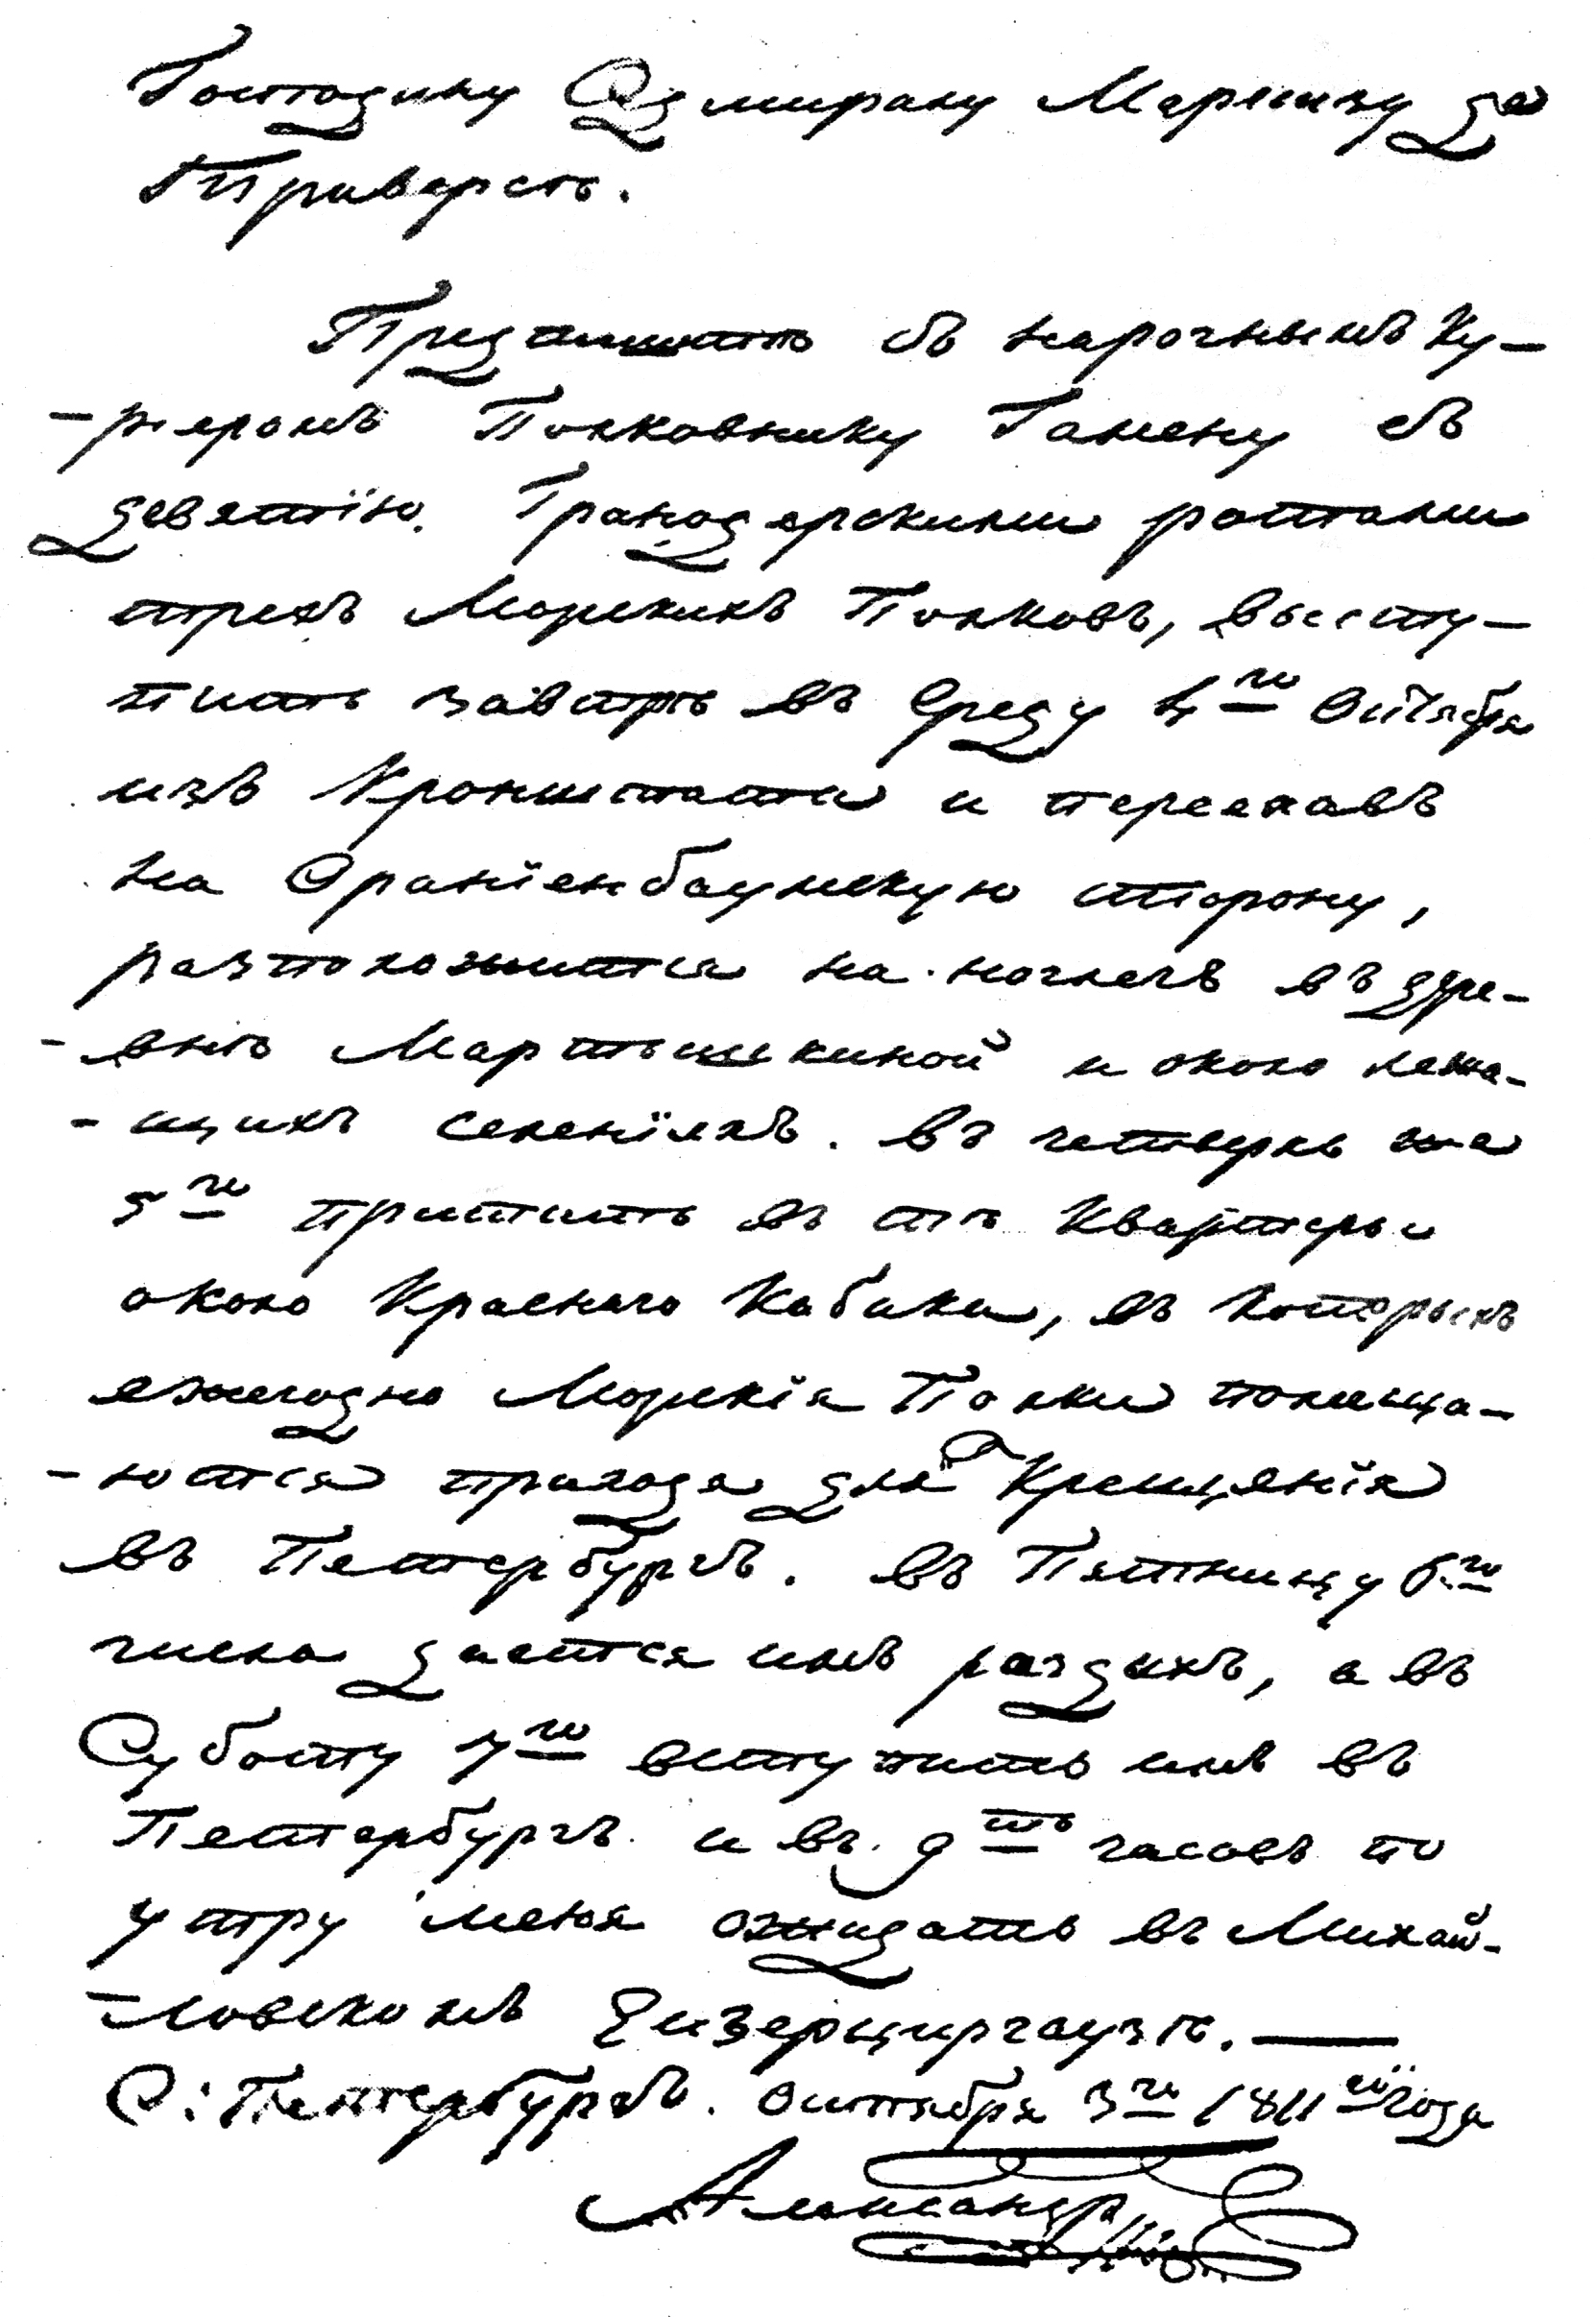 Господину Адмиралу Маркизу де
Траверсѣ.
Предпишитѣ съ нарочнымъ Ку-
-рьеромъ Полковнику Гамену съ
девятью Гранодерскими ротами
трехъ Морскихъ Полковъ, высту-
пить завтрѣ въ Среду 4го Октября
изъ Кронштата и переехавъ
на Ораніенбаумскую сторону,
разположитьтся на ночлегъ въ дере-
-внѣ Мартышкиной и около лежа-
-щихъ селеніяхъ. Въ четверкъ же
5го притить въ тѣ Квартеры
около Краснаго Кабака, въ которыхъ
ежегодно Морскія Полки помеща-
-ются приходя для Крещенія
въ Петербургъ. Въ Пятницу 6го
числа дается имъ раздыхъ, а въ
Суботу 7го вступить имъ въ
Петербургъ и въ 9ть часовъ по
утру меня ожидать въ Михай-
-ловскомъ Екзерциргаузѣ.
С: Петербургъ. Октября 3го 1811го года
Александръ